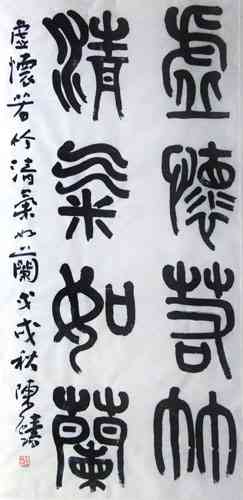 虛懷若竹
清氣如蘭
虛懷若竹清氣如蘭戊戌秋陳